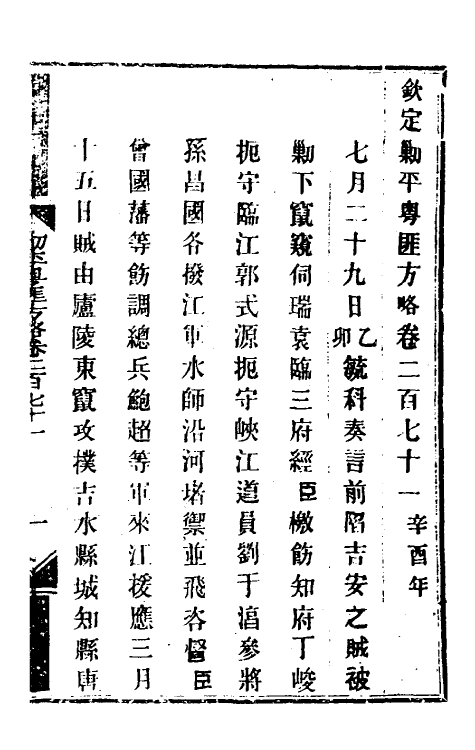 欽定勦平粵匪方略卷二百七十一 辛酉年
七月二十九日乙卯毓科奏言前陷吉安之賊被
勦下竄窺伺瑞袁臨三府經臣檄飭知府丁峻
扼守臨江郭式源扼守峽江道員劉于潯參將
孫昌國各撥江軍水師沿河堵禦並飛咨督臣
曾國藩等飭調總兵鮑超等軍來江援應三月
十五日賊由廬陵東竄攻撲吉水縣城知縣唐
勦平粵匪方略卷二百七十一
一